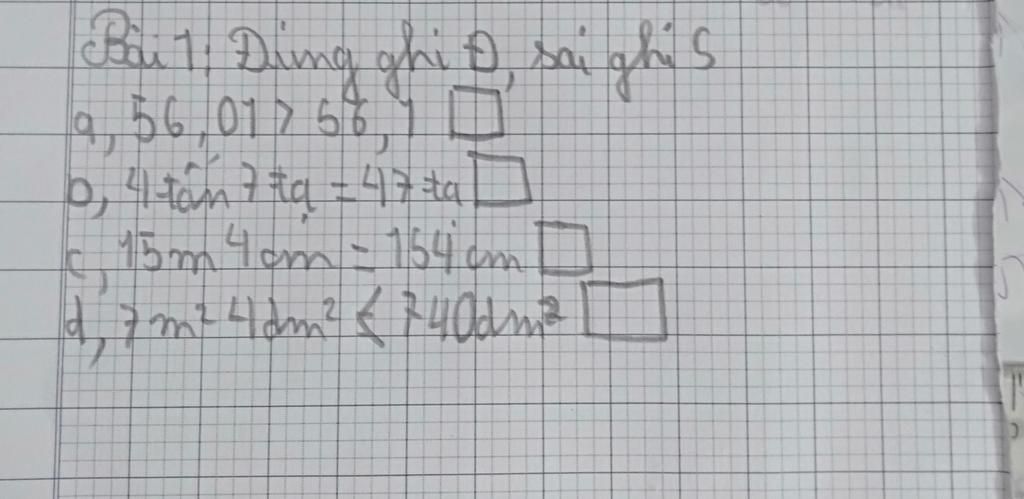 Bài 1: Đúng ghi Đ, sai ghi S
a, 56,01 > 56,1 □
b, 4 tấn 7 tạ = 47 tạ □
c, 15m 4cm = 154cm □
d, 7m² 4dm² < 740dm² □